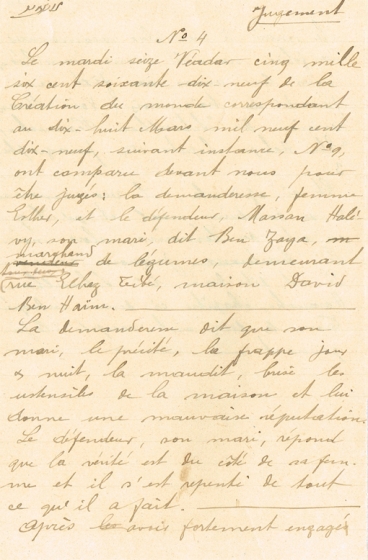 Jugement
No 4
Le mardi seize Véadar cinq mille
six cent soixante dix-neuf de la
Création du monde correspondant
au dix-huit Mars mil neuf cent
dix-neuf, suivant instance, No 9,
ont comparu devant nous pour
être jugés: la demanderesse, femme
Esther, et le défendeur, Massan Halé
vy, son mari, dit Ben Zaga,
marchand
vendeur de légumes, demeurant
rue Elhez maison David
Ben Haïm.
La demanderesse dit que son
mari, le précité, la frappe jour
& nuit, la maudit, brise les
ustensiles de la maison et lui
donne une mauvaise réputation.
Le défendeur, son mari, répond
que la vérité est du côté de sa fem-
me et il s'est repenti de tout
ce qu'il a fait.
Après les avoir fortement engagés